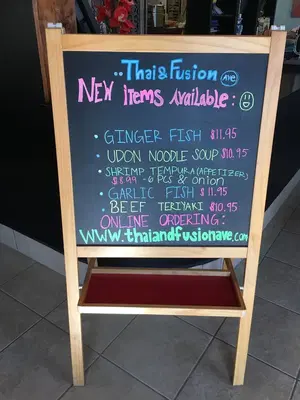 ..Thai&Fusion Ave
New Items Available:
• GINGER FISH $11.95
• UDON NOODLE SOUP $10.95
• SHRIMP TEMPURA (APPETIZER)
$8.99 - 6 PCS & onion
• GARLIC FISH $11.95
• BEEF TERIYAKI $10.95
ONLINE ORDERING:
www.thaiandfusionave.com